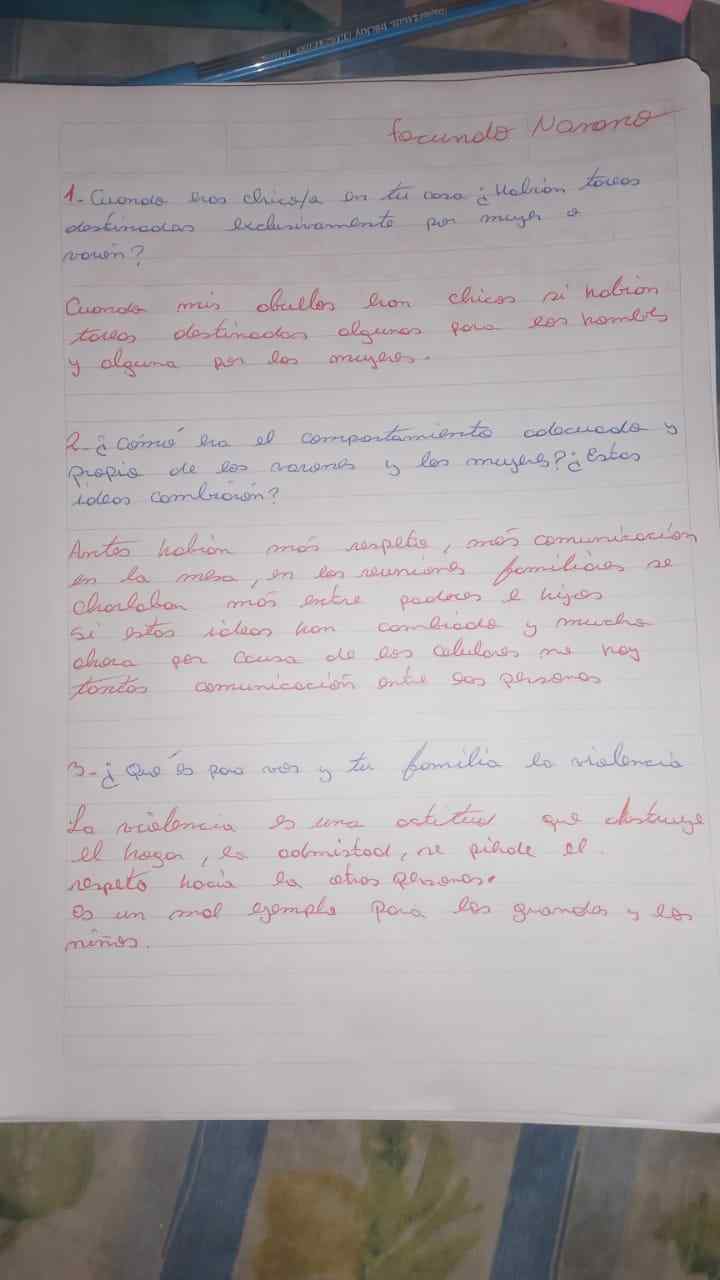 Facundo Narano
1- Cuando eras chico/a en tu casa ¿Habían tareas
destinadas exclusivamente por mujer o
varón?
Cuando mis abuelos eran chicos si habían
tareas destinadas algunas para los hombres
y alguna por las mujeres.
2-¿Cómo era el comportamiento adecuado y
propio de los varones y las mujeres? ¿Estas
ideas cambiarón?
Antes habían más respeto, más comunicación
en la mesa, en las reuniones familiares se
charlaban más entre padres e hijos
Si estas ideas han cambiado y mucho
ahora por causa de los celulares no hay
tantas comunicación entre las personas
3-¿Qué es para vos y tu familia la violencia
La violencia es una actitud que destruye
el hogar, la admistad, se pierde el
respeto hacia la otras personas.
es un mal ejemplo para los grandes y los
niños.